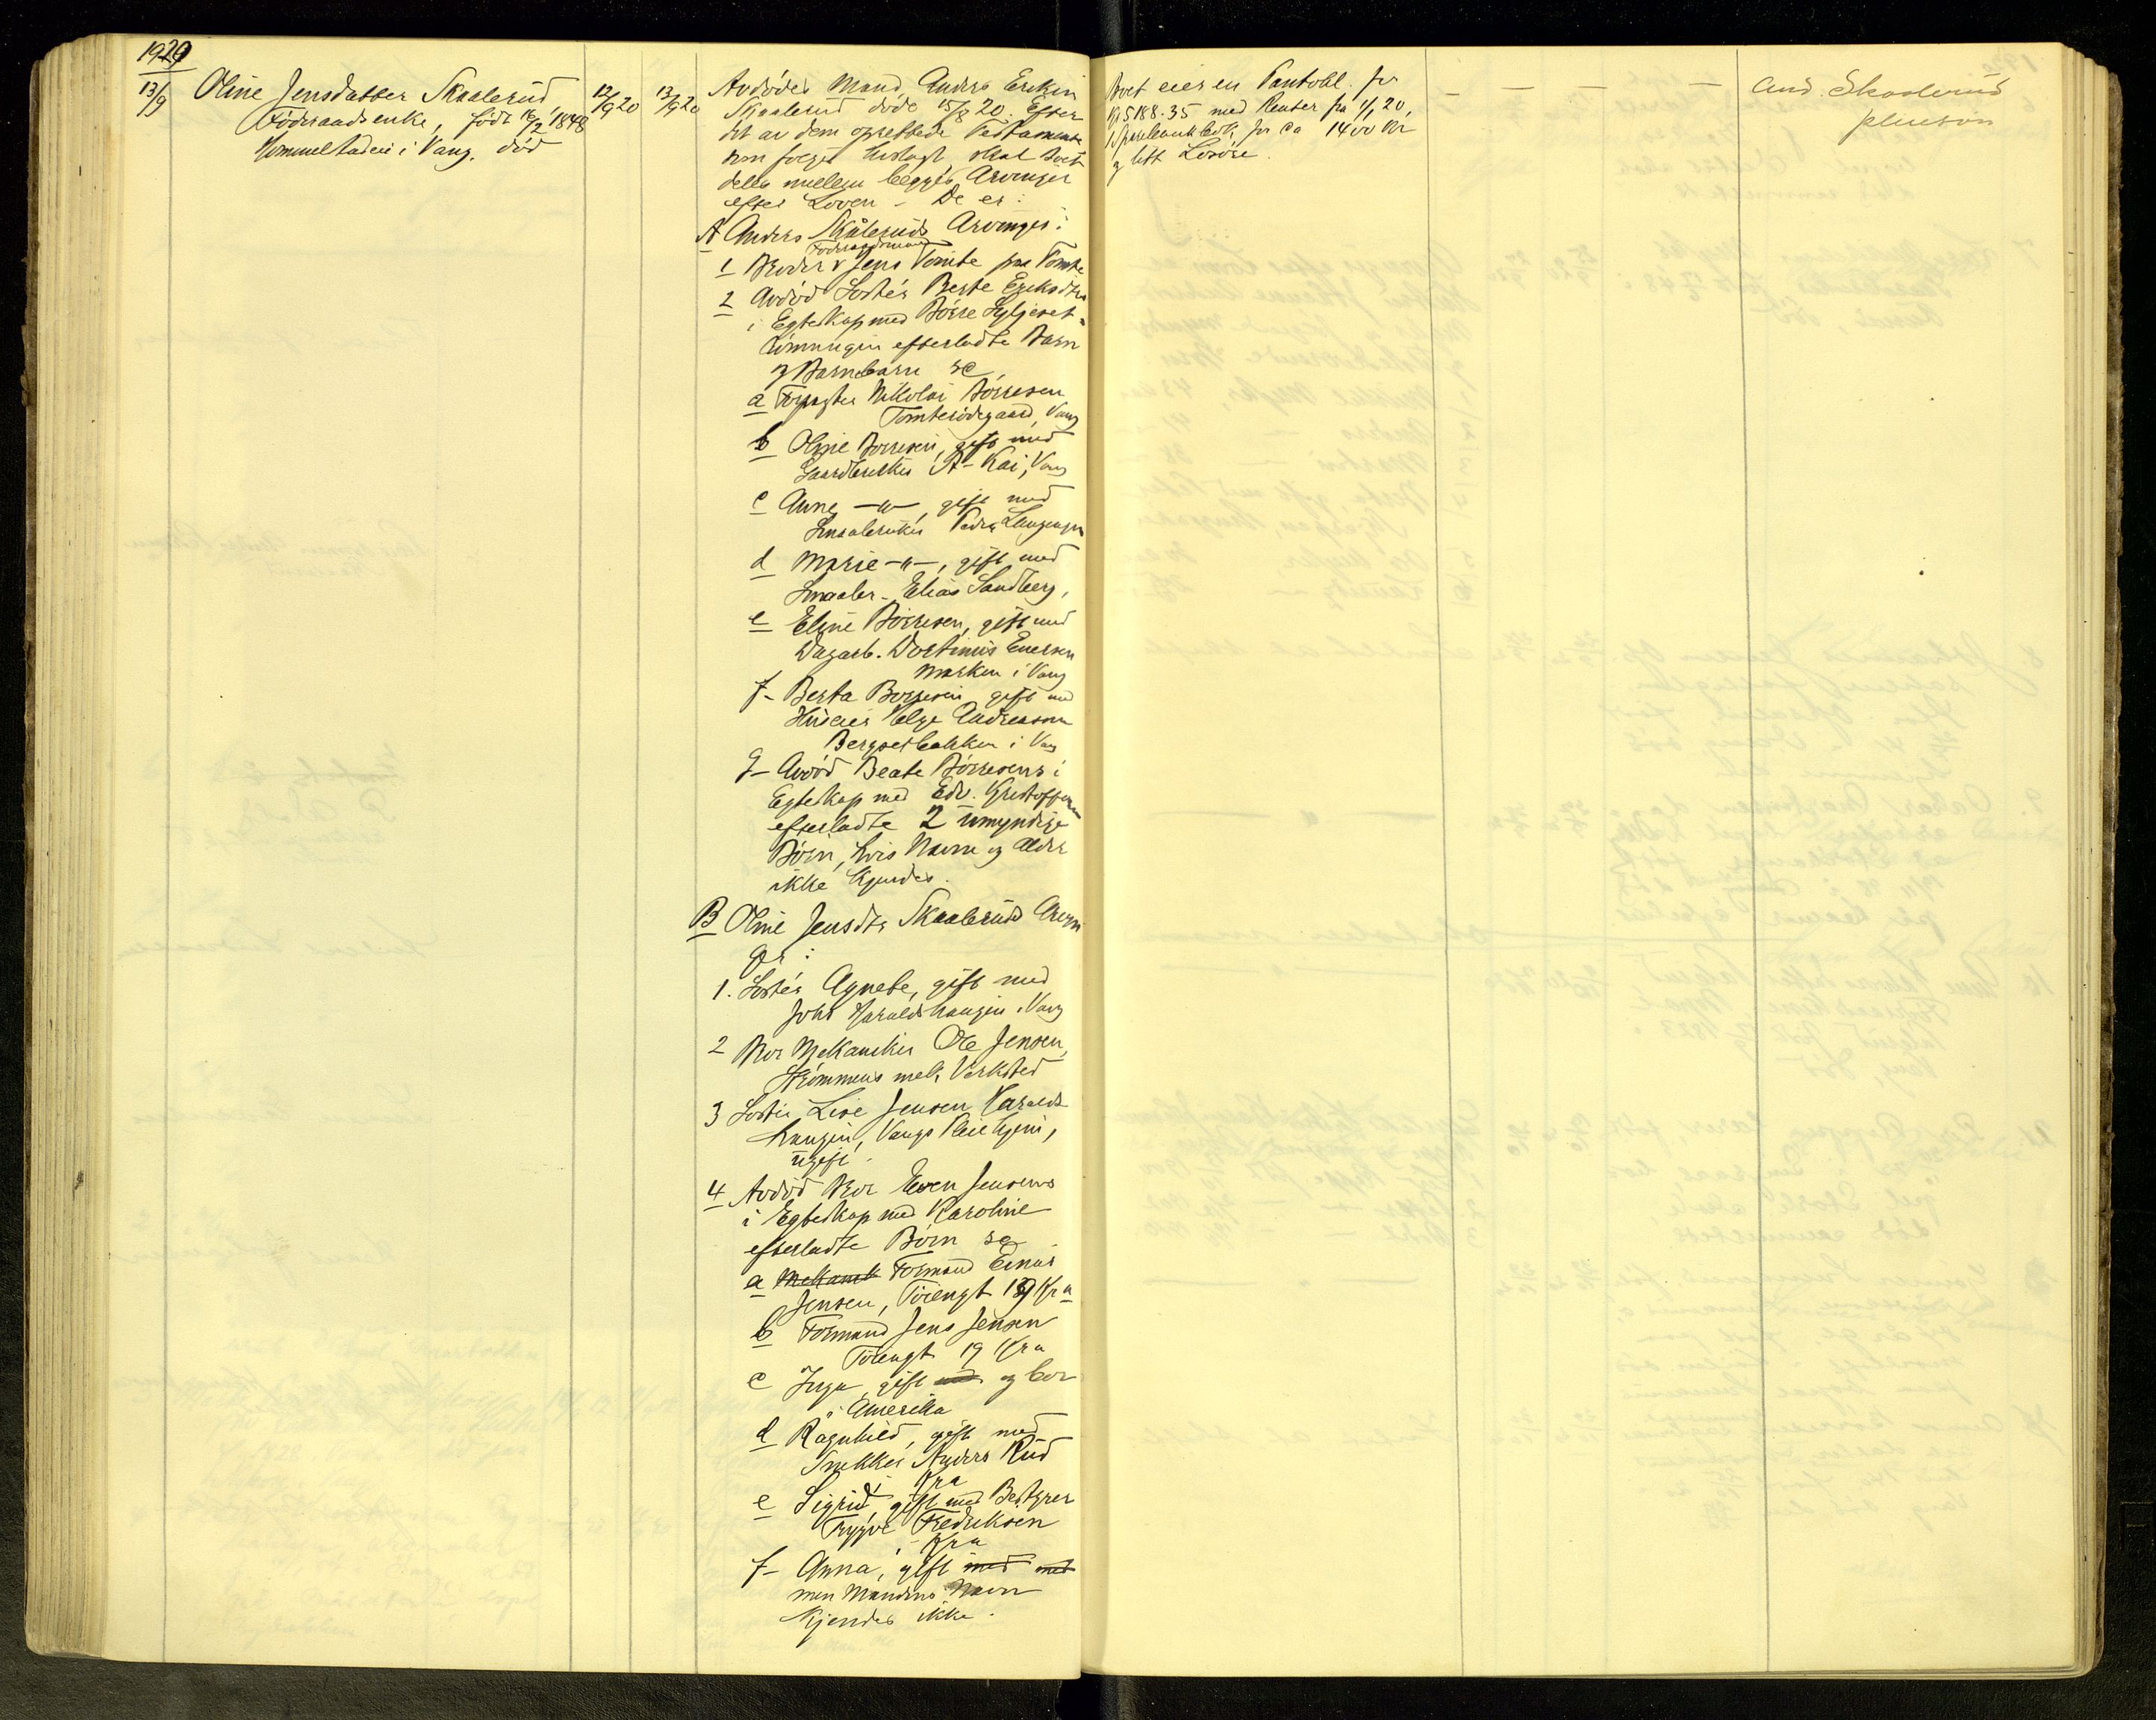 1920
13/9 Oline Jensdatter Skaalerud
Föderaadsenke, född 16/2 1848
Hommelstaden i Vang. död
12/9 20
13/9 20
Avdödes Mand Anders Eriksen
Skaalerud döde 15/8 20. Efter
det av dem oprettede Testamente
som følger hoslagt skal boet
deles mellem begges Arvinger
efter Loven - De er:
A Anders Skåleruds Arvinger:
Föderaadsmand
1 Broder Jens Tomte paa Tomte
2 Avdöd Söster Berte Eriksdtr
i Egteskap med Börre
efterladte Barn
og Barnebarn se
a Forpagter Nikolai Börresen
Tomterödegaard, Vang
b Oline Börresen, gift med
Gaardbruker A - Kai, Vang
c Anne -"-, gift med
Smaabruker Peder
d Marie -"-, gift med
Smaabr. Elias Sandberg,
e Eline Börresen, gift med
Dagarb. Martinius Enersen
marken i Vang
f - Berta Börresen gift med
Huseier Helge Andreassen
Bergsetbakken i Vang
g - Avdöd Beate Börresens i
Egteskap med Edv. Kristoffersen
efterladte 2 umyndige
Börn, hvis Navn og Alder
ikke kjendes.
B Oline Jensdtr Skaaleruds Arvin
ger:
1. Söster Agnete, gift med
Johs Haraldshaugen i Vang
2 Bror Mekaniker Ole Jensen,
Strömmens mek. Verksted
3 Söster Lise Jensen Haralds
haugen, Vangs Pleiehjem,
ugift.
4 Avdöd Bror Even Jensens
i Egteskap med Karoline
efterladte Börn se
a Mekanik Formand Einar
Jensen, Töiengt 19 Kra
b Formand Jens Jensen
Töiengt 19 Kra
c Inga, gift med og bor
i Amerika
d Ragnhild, gift med
Snekker Anders Rud
i Kra
e Sigrid, gift med Bestyrer
Trygve Fredriksen
i Kra
f - Anna, gift med med
men Mandens Navn
Kjendes ikke.
Boet eier en Pantobl. for
Kr 5188.35 med Renter fra 1/1 20,
1 Sparebankbok for ca 1400 Kr
og litt Lösöre.
- - - - -
And. Skaalerud